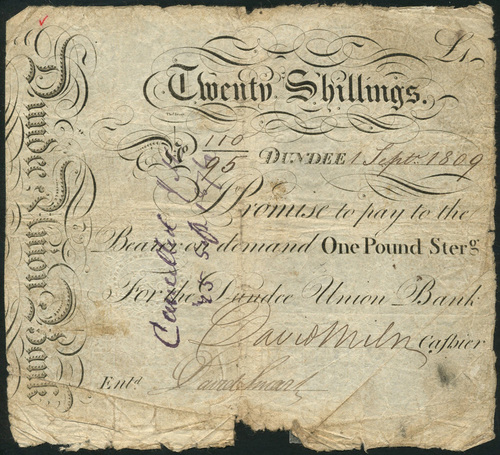 £1
Twenty Shillings.
No 110/95 DUNDEE 1 Septr. 1809
I Promise to pay to the
Bearer on demand One Pound Sterg
For the Dundee Union Bank
David Miln Cashier
Entd David Smart
Dundee Union Bank
Cancelled